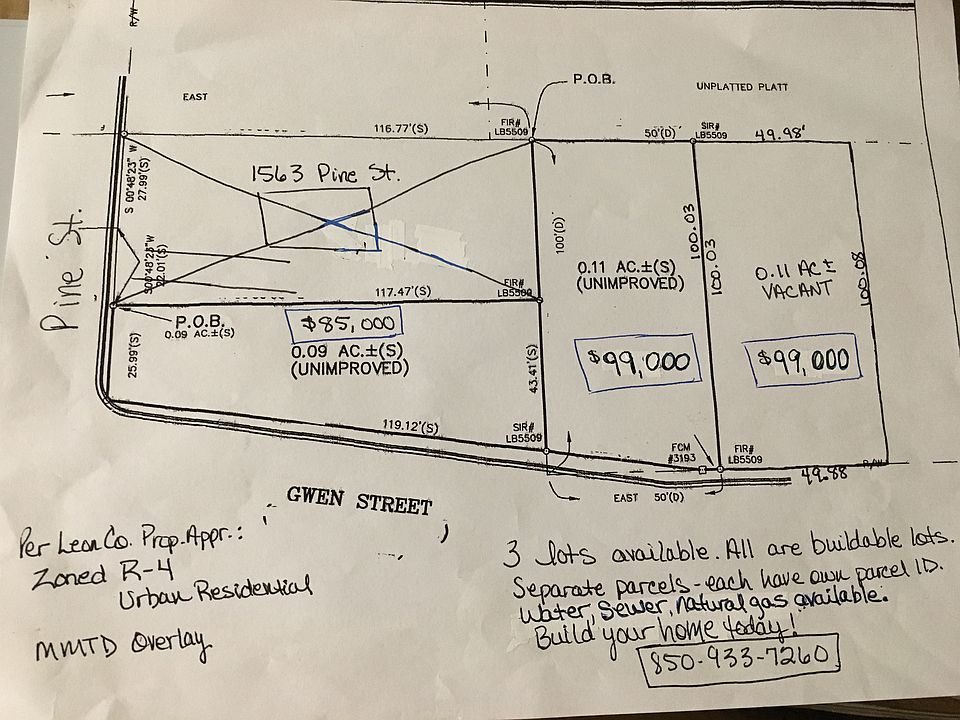 R/W
P.O.B.
UNPLATTED PLATT
EAST
116.77'(S)
FIR#
LB5509
50'(D)
SIR#
LB5509
49.98'
S 00°48'23" W
27.99'(S)
1563 Pine St.
Pine St.
S00°48'23"W
22.01'(S)
100'(D)
100.03
100.03
0.11 AC.±(S)
(UNIMPROVED)
0.11 AC ±
VACANT
100.08
117.47'(S)
FIR#
LB5509
P.O.B.
0.09 AC.±(S)
$85,000
0.09 AC.±(S)
(UNIMPROVED)
25.99'(S)
43.41'(S)
$99,000
$99,000
119.12'(S)
SIR#
LB5509
FCM
#3193
FIR#
LB5509
R/W
49.88
EAST 50'(D)
GWEN STREET
Per Leon Co. Prop. Appr.:
Zoned R-4
Urban Residential
MMTD Overlay
3 lots available. All are buildable lots.
Separate parcels - each have own parcel ID.
Water, Sewer, natural gas available.
Build your home today!
850-933-7260